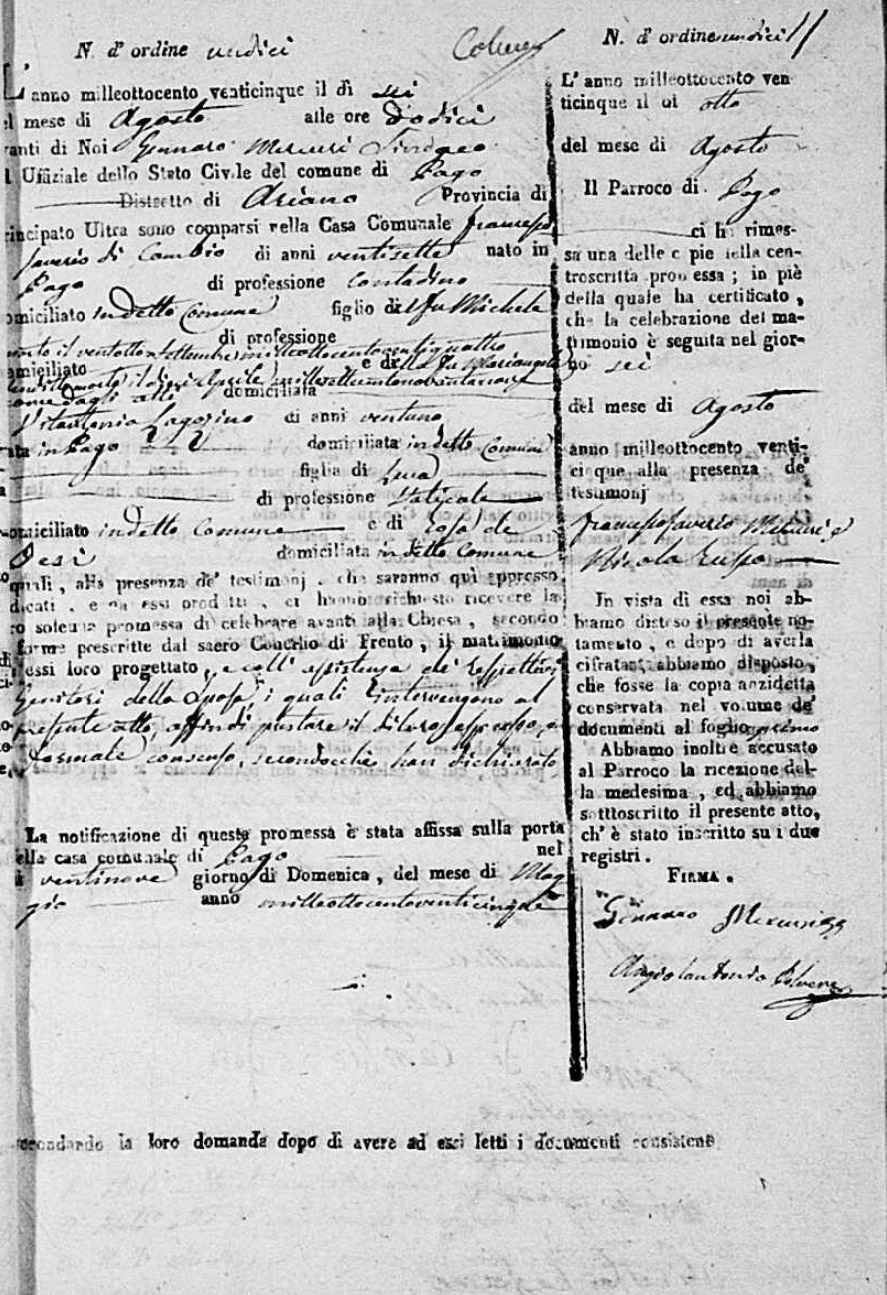 N. d' ordine undici
L' anno milleottocento venticinque il dì sei
el mese di Agosto alle ore dodici
vanti di Noi Gennaro Mercuri Sindaco
d Uffiziale dello Stato Civile del comune di Pago
Distretto di Ariano Provincia di
rincipato Ultra sono comparsi nella Casa Comunale Francesco
Saverio di Cambio di anni ventisette nato in
Pago di professione contadino
omiciliato in detto Comune figlio del fu Michele
di professione
morto il ventotto Settembre milleottocentoventiquattro
omiciliato e della fu Mariangela
morta il dieci Aprile
come dagli atti domiciliata
Vitantonia di anni ventuno
ata in Pago domiciliata in detto Comune
figlia di Luca
di professione Vaticale
omiciliato in detto Comune e di Rosa de
domiciliata in detto Comune
quali, alla presenza de' testimonj, che saranno quì appresso
dicati, e da essi prodotti, ci hanno richiesto ricevere la
ro solenne promessa di celebrare avanti alla Chiesa, secondo
forme prescritte dal sacro Concilio di Trento, il matrimonio
essi loro progettato, e coll' assistenza de' rispettivi
Genitori della Sposa, i quali intervengono al
presente atto, affin di prestare il di loro espresso, e
formale consenso, secondocchè han dichiarato
La notificazione di questa promessa è stata affissa sulla porta
ella casa comunale di Pago nel
ì ventinove giorno di Domenica, del mese di Mag
gio anno milleottocentoventicinque
econdando la loro domanda dopo di avere ad essi letti i documenti consistenti
N. d' ordine undici 11
L' anno milleottocento ven-
ticinque il dì otto
del mese di Agosto
Il Parroco di Pago
ci ha rimes-
sa una delle copie della con-
troscritta promessa; in piè
della quale ha certificato,
che la celebrazione del ma-
trimonio è seguita nel gior-
no sei
del mese di Agosto
anno milleottocento venti-
cinque alla presenza de'
testimonj
Francescosaverio Mercuri e
Nicola Russo
In vista di essa noi ab-
biamo disteso il presente no-
tamento, e dopo di averla
cifrata, abbiamo disposto,
che fosse la copia anzidetta
conservata nel volume de'
documenti al foglio primo
Abbiamo inoltre accusato
al Parroco la ricezione del-
la medesima, ed abbiamo
sotttoscritto il presente atto,
ch' è stato inscritto su i due
registri.
FIRMA.
Gennaro Mercuri
Angiolantonio Polvere